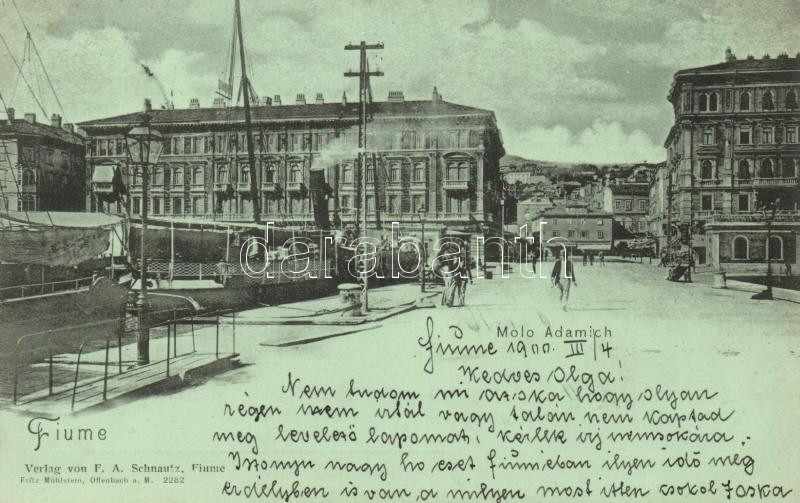 darabanth
Molo Adamich
Fiume 1900. III/4
Kedves Olga!
Nem tudom mi az oka hogy olyan
régen nem irtál vagy talan nem kaptad
meg levelező lapomat, kérlek irj nemsokára.
Iszonyu nagy ho eset fiumeban ilyen idő meg
erdélyben is van, a milyen most itten csokol Jóska
Fiume
Verlag von F. A. Schnautz, Fiume
Fritz Mühlstein, Offenbach a. M. 2282